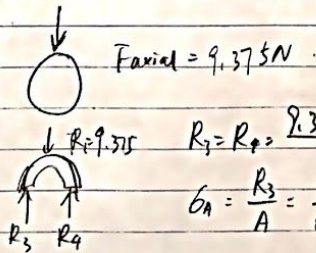 Faxial = 9.375N
R₁=9.375
R₃ = R₄ = 9.3
σA = R₃/A =
R₃ R₄